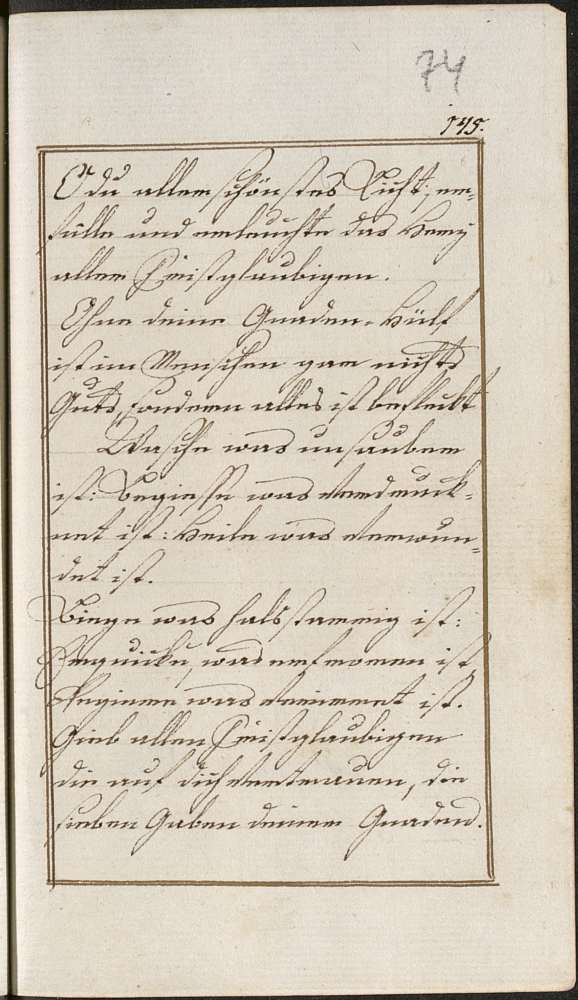 74
145.
O du aller schönstes Licht, er-
fülle und erleuchte das Hertz
aller Cristglaubigen.
Ohne deine Gnaden-Hülf
ist im Menschen gar nichts
Guts, sondern alles ist befleckt
Wasche was unsauber
ist: Begiesse was verdruck-
net ist: Heile was verwun-
det ist.
Biege was halsstarrig ist:
Erquicke, was erfroren ist,
Regiere was verirret ist.
Gieb allen Cristglaubigen
die auf dich vertrauen, die
sieben Gaben deiner Gnaden.